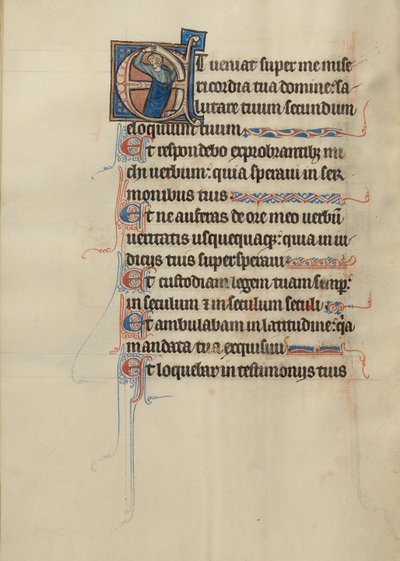 Et veniat super me mise
ricordia tua domine: sa
lutare tuum secundum
eloquium tuum
Et respondebo exprobrantibȝ mi
chi verbum: quia speravi in ser
monibus tuis
Et ne auferas de ore meo verbū
veritatis usquequaqȝ: quia in iu
dicijs tuis supersperavi
Et custodiam legem tuam semp̄:
in seculum ⁊ in seculum seculi
Et ambulabam in latitudine: q̄a
mandata tua exquisivi
Et loquebar in testimonijs tuis